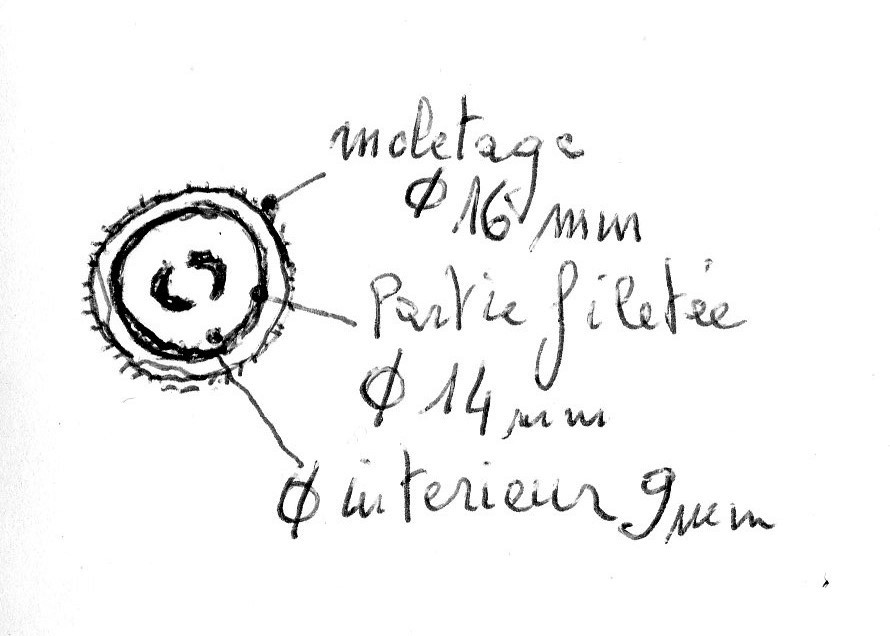 moletage
ϕ 16 mm
Partie filetée
ϕ 14 mm
ϕ interieur 9 mm